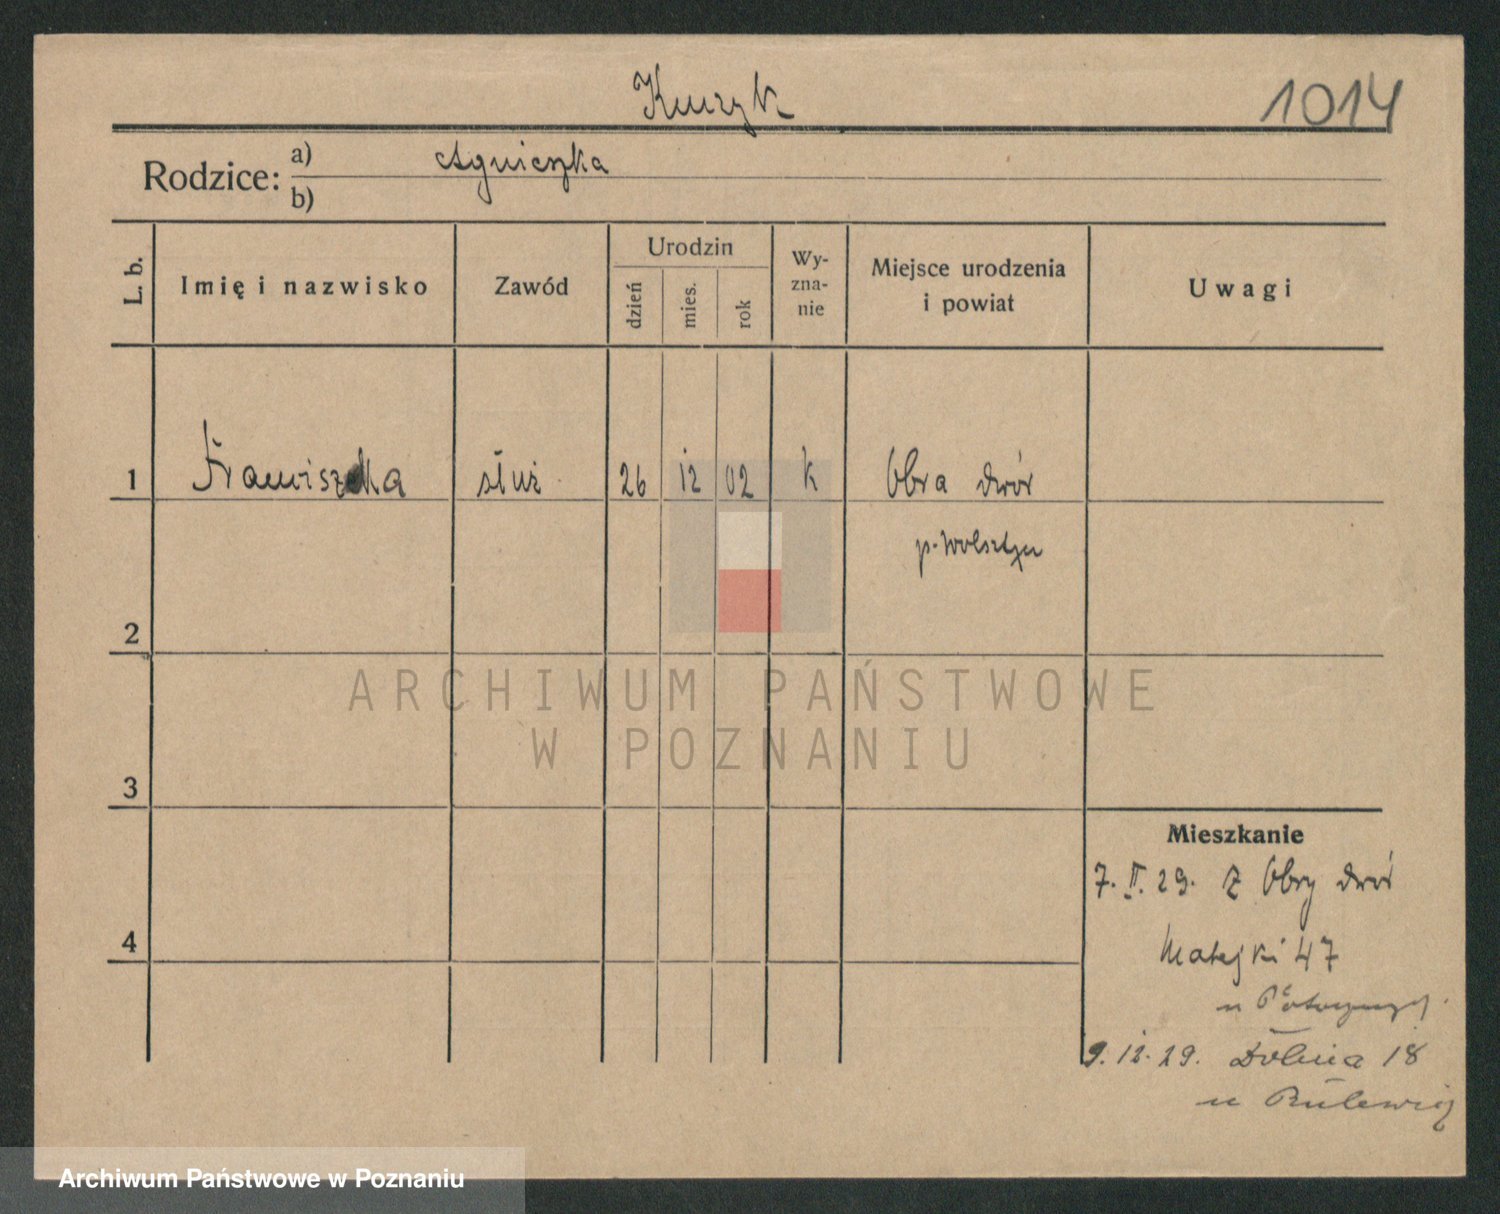 Kurzyk
1014
Rodzice: a) Agnieszka
b)
L. b.
Imię i nazwisko
Zawód
Urodzin
dzień
mies.
rok
Wy-
zna-
nie
Miejsce urodzenia
i powiat
Uwagi
1 Franciszka służ 26 12 02 k Obra dwór
p. Wolsztyn
2
ARCHIWUM PAŃSTWOWE
W POZNANIU
3
Mieszkanie
7. II. 29. z Obry dwór
4
Matejki 47
u
9. 12. 29. Dolina 18
u
Archiwum Państwowe w Poznaniu